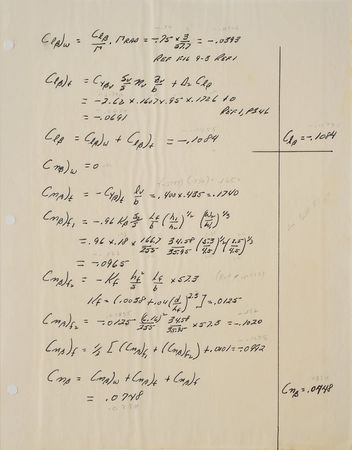 Clβ)w = Clβ/Γ · Γ RAD = -.75 × 3/57.7 = -.0393
REF FIG 9-3 REF 1
Clβ)t = Cyβv Sv/S ηv Zv/b + Δ2 Clβ
= -2.62 × .1607 × .95 × .1726 + 0
= -.0691
REF 1, P 346
Clβ = Clβ)w + Clβ)t = -.1084
Clβ = -.1084
Cnβ)w = 0
Cnβ)t = -Cyβ)t lv/b = .400 × .435 = .1740
Cnβ)f1 = -.96 Kβ Ss/S Lf/b (h1/h2)^1/2 (b2/b1)^1/3
= .96 × .18 × 166.7/255 34.58/35.95
= -.0965
Cnβ)f2 = -Kf hf²/S Lf/b × 57.3
Kf = (.0058 + .04 (d/Lf)^2.3] = .0125
Cnβ)f2 = -.0125 255 34.58/35.95 × 57.3 = -.1020
Cnβ)f = 1/2 [(Cnβ)f1 + (Cnβ)f2) + .0101 = -.0892
Cnβ = Cnβ)w + Cnβ)t + Cnβ)f
= .0748
Cnβ = .0448